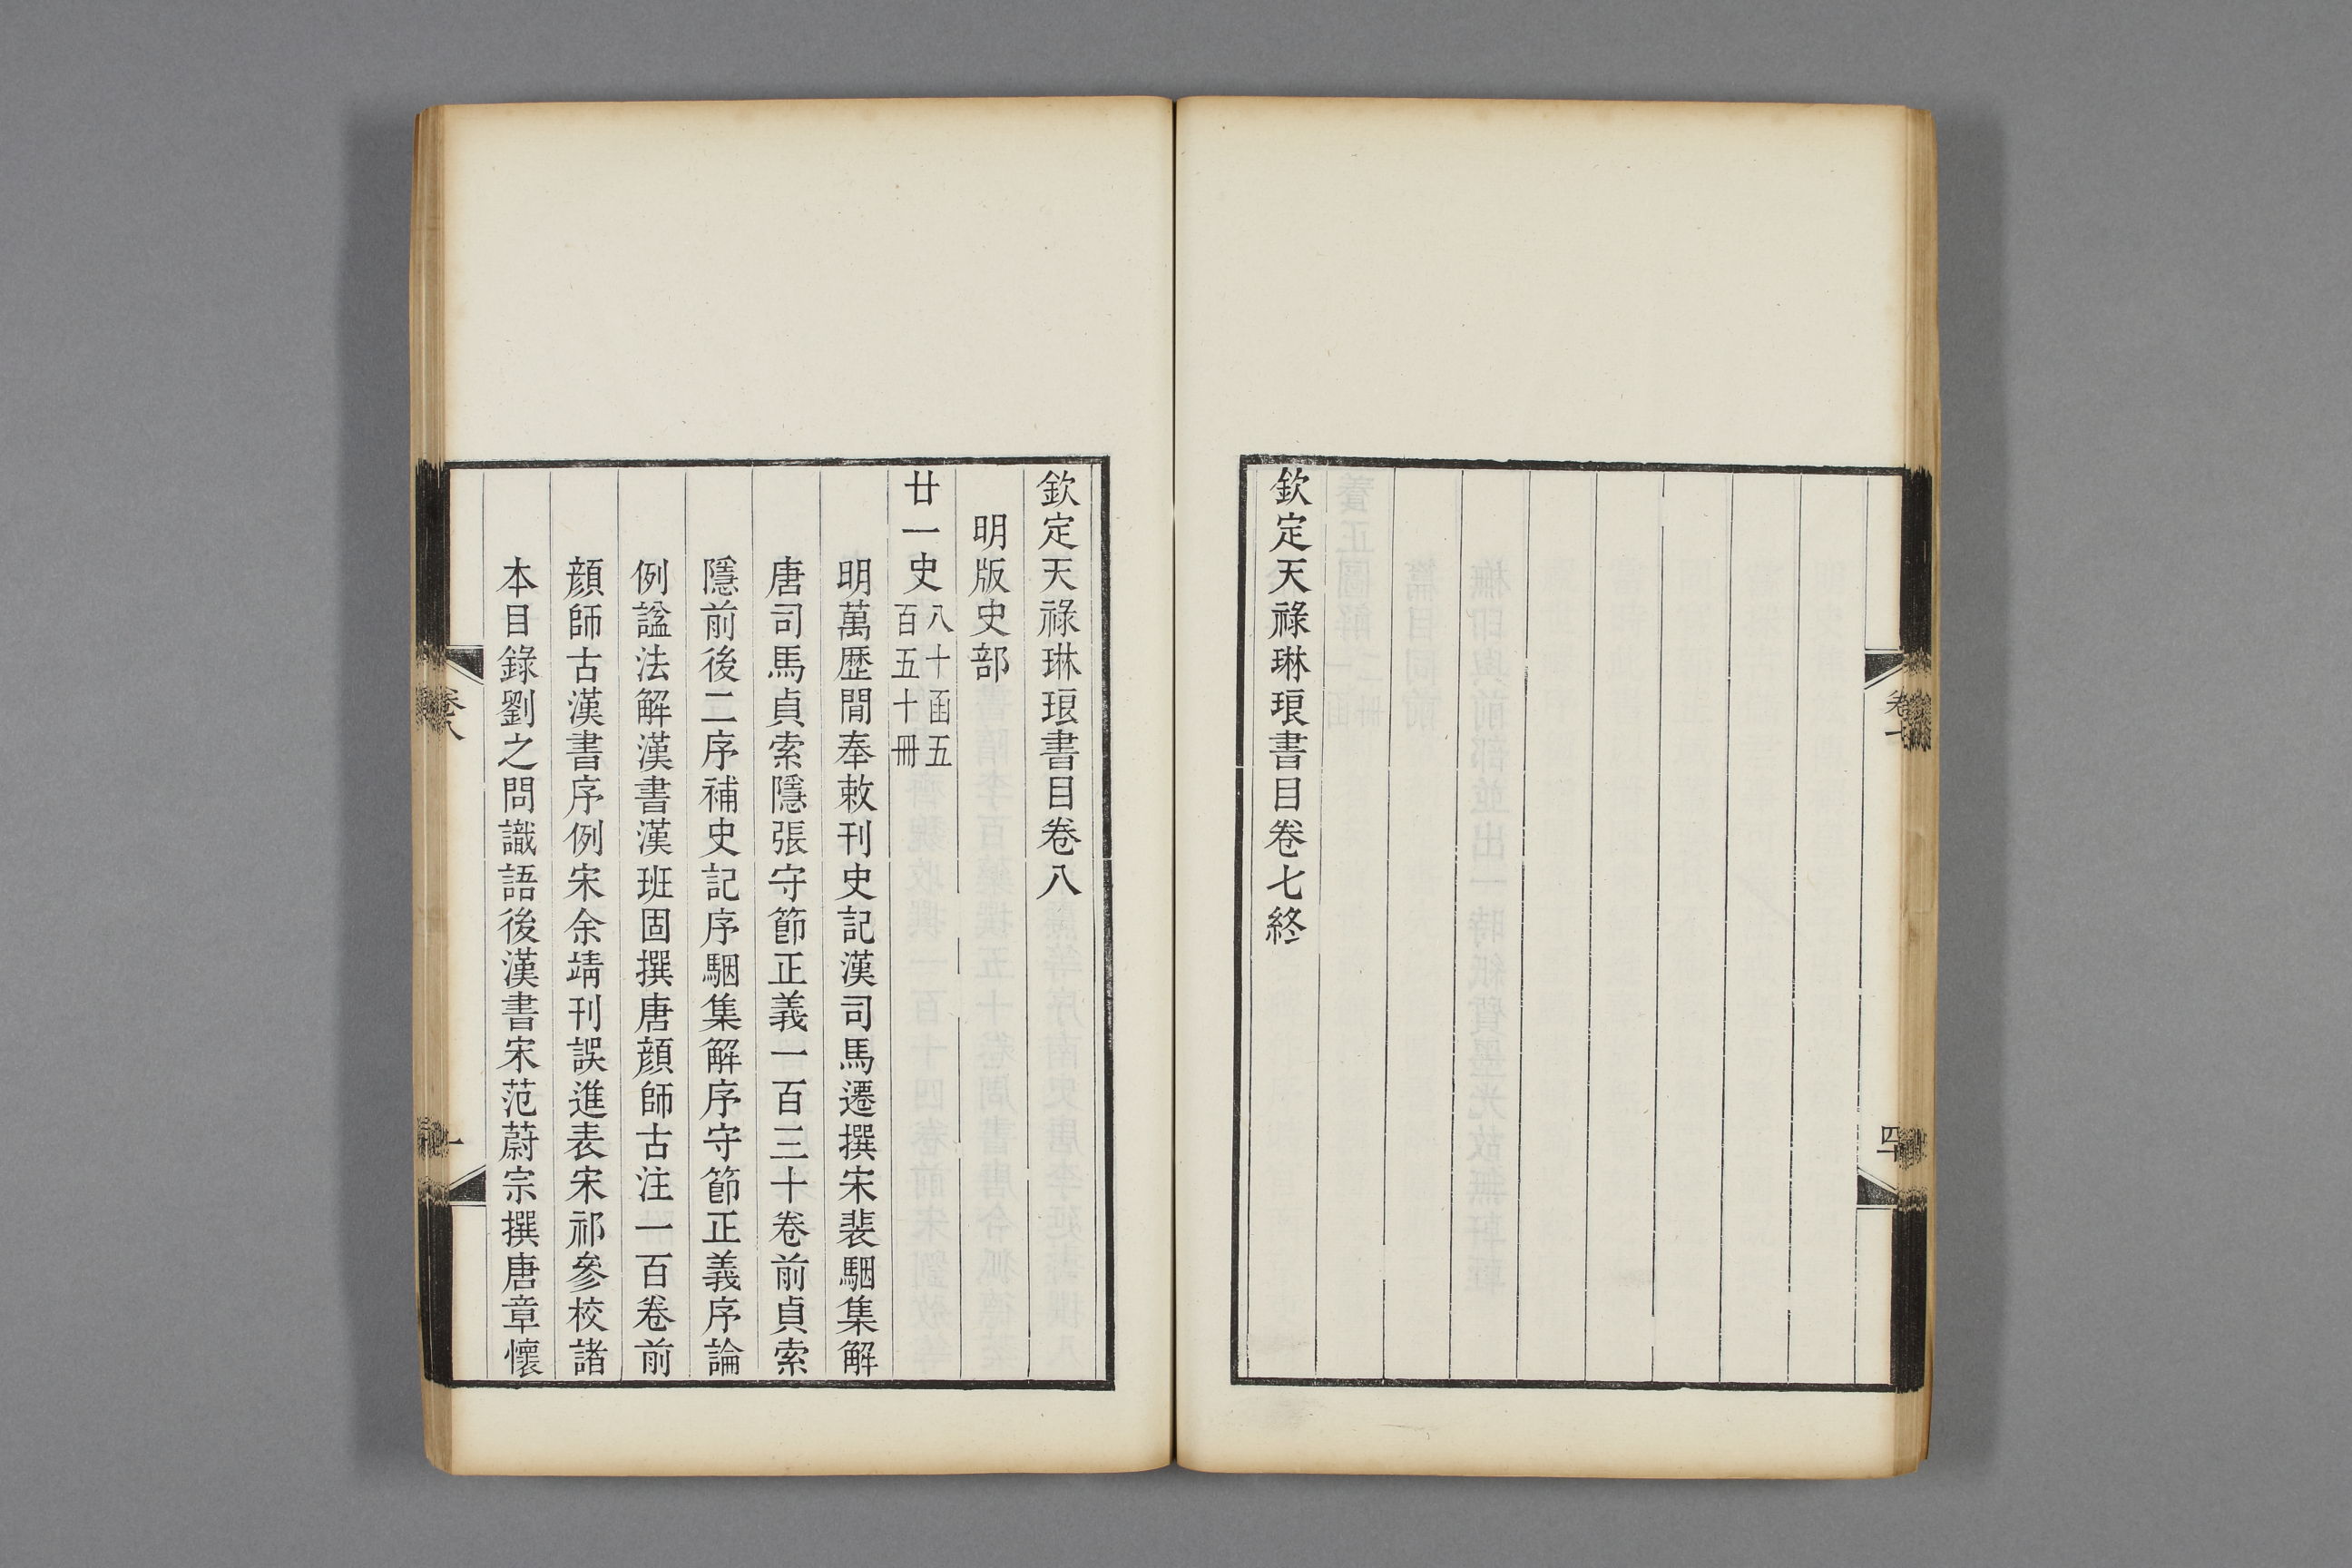 欽定天祿琳琅書目卷七終
卷七
四十
欽定天祿琳琅書目卷八
明版史部
廿一史八十函五百五十冊
明萬歷閒奉敕刊史記漢司馬遷撰宋裴駰集解
唐司馬貞索隱張守節正義一百三十卷前貞索
隱前後二序補史記序駰集解序守節正義序論
例諡法解漢書漢班固撰唐顏師古注一百卷前
顏師古漢書序例宋余靖刊誤進表宋祁參校諸
本目錄劉之問識語後漢書宋范蔚宗撰唐章懷
卷八
一